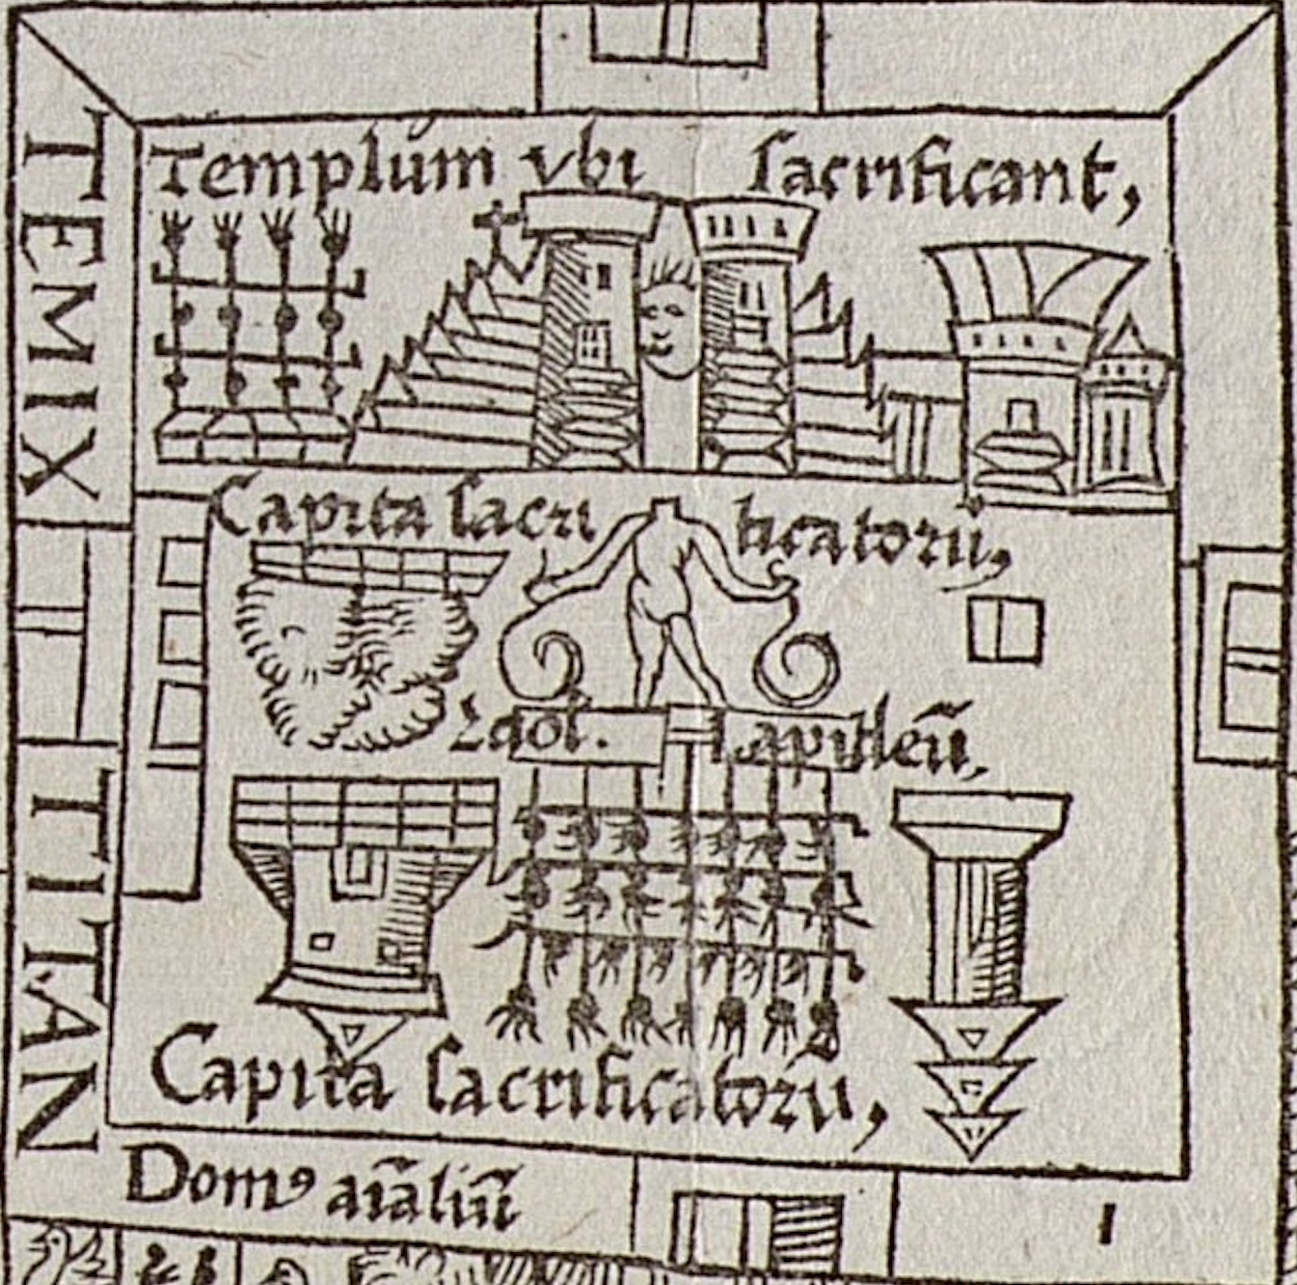 TEMIX
TITAN
Templúm vbi sacrificant,
Capita sacrificatorū,
Idol. Lapideū.
Capita sacrificatorū,
Domꝰ aīaliū
I